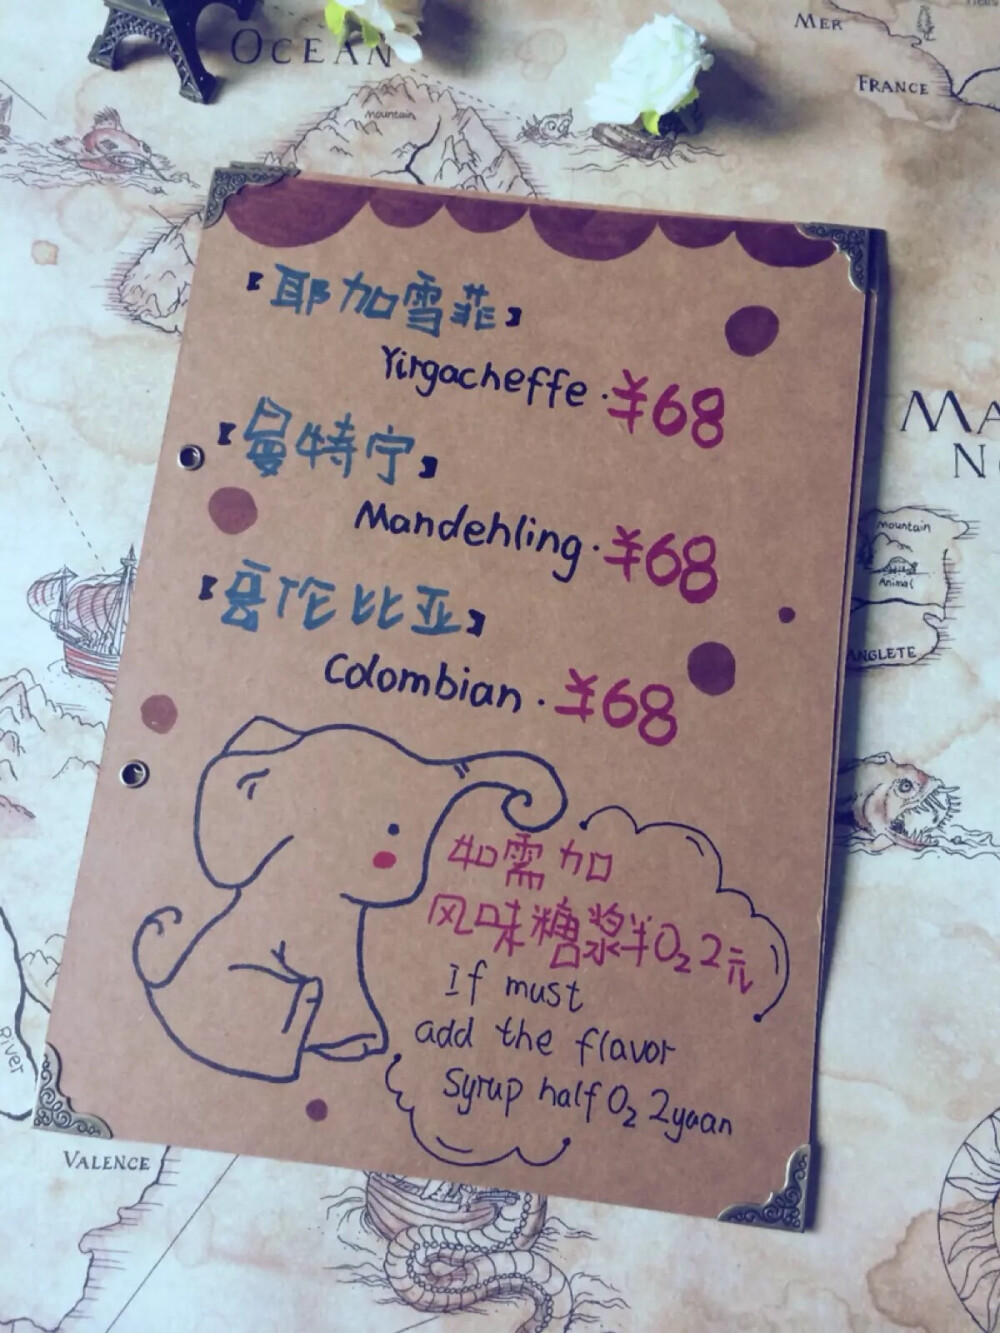 OCEAN
mountain
MER
FRANCE
【耶加雪菲】
Yirgacheffe · ¥68
【曼特宁】
Mandehling · ¥68
【哥伦比亚】
Colombian · ¥68
如需加
风味糖浆半O₂ 2元
If must
add the flavor
syrup half O₂ 2yuan
mountain
Animal
ANGLETE
River
VALENCE